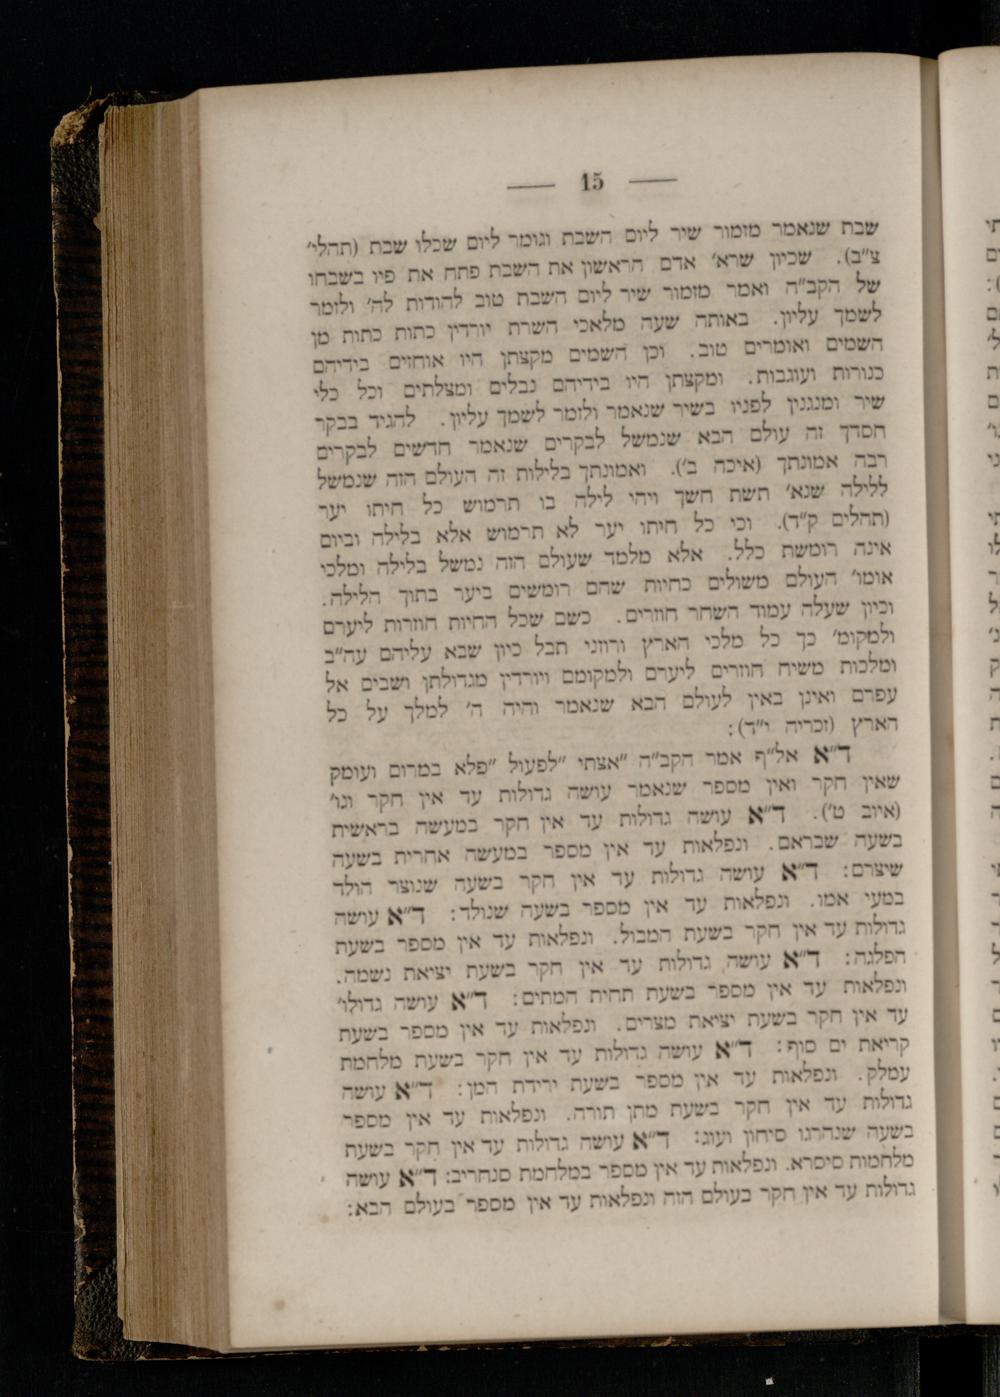 — 15 —
שבת שנאמר מזמור שיר ליום השבת וגומר ליום שכלו שבת (תהלי׳
צ״ב). שכיון שרא׳ אדם הראשון את השבת פתח את פיו בשבחו
של הקב״ה ואמר מזמור שיר ליום השבת טוב להודות לה׳ ולזמר
לשמך עליון. באותה שעה מלאכי השרת יורדין כתות כתות מן
השמים ואומרים טוב. וכן השמים מקצתן היו אוחזים בידיהם
כנורות ועוגבות. ומקצתן היו בידיהם נבלים ומצלתים וכל כלי
שיר ומנגנין לפניו בשיר שנאמר ולזמר לשמך עליון. להגיד בבקר
חסדך זה עולם הבא שנמשל לבקרים שנאמר חדשים לבקרים
רבה אמונתך (איכה ב׳). ואמונתך בלילות זה העולם הזה שנמשל
ללילה שנא׳ תשת חשך ויהי לילה בו תרמוש כל חיתו יער
(תהלים ק״ד). וכי כל חיתו יער לא תרמוש אלא בלילה וביום
אינה רומשת כלל. אלא מלמד שעולם הזה נמשל בלילה ומלכי
אומו׳ העולם משולים כחיות שהם רומשים ביער בתוך הלילה.
וכיון שעלה עמוד השחר חוזרים. כשם שכל החיות חוזרות ליערם
ולמקומ׳ כך כל מלכי הארץ ורוזני תבל כיון שבא עליהם עה״ב
ומלכות משיח חוזרים ליערם ולמקומם ויורדין מגדולתן ושבים אל
עפרם ואינן באין לעולם הבא שנאמר והיה ה׳ למלך על כל
הארץ (זכריה י״ד):
ד״א אל״ף אמר הקב״ה ״אצתי ״לפעול ״פלא במרום ועומק
שאין חקר ואין מספר שנאמר עושה גדולות עד אין חקר וגו׳
(איוב ט׳). ד״א עושה גדולות עד אין חקר במעשה בראשית
בשעה שבראם. ונפלאות עד אין מספר במעשה אחרית בשעה
שיצרם: ד״א עושה גדולות עד אין חקר בשעה שנוצר הולד
במעי אמו. ונפלאות עד אין מספר בשעה שנולד: ד״א עושה
גדולות עד אין חקר בשעת המבול. ונפלאות עד אין מספר בשעת
הפלגה: ד״א עושה גדולות עד אין חקר בשעת יציאת נשמה.
ונפלאות עד אין מספר בשעת תחית המתים: ד״א עושה גדולו׳
עד אין חקר בשעת יציאת מצרים. ונפלאות עד אין מספר בשעת
קריאת ים סוף: ד״א עושה גדולות עד אין חקר בשעת מלחמת
עמלק. ונפלאות עד אין מספר בשעת ירידת המן: ד״א עושה
גדולות עד אין חקר בשעת מתן תורה. ונפלאות עד אין מספר
בשעה שנהרגו סיחון ועוג: ד״א עושה גדולות עד אין חקר בשעת
מלחמות סיסרא. ונפלאות עד אין מספר במלחמת סנחריב: ד״א עושה
גדולות עד אין חקר בעולם הזה ונפלאות עד אין מספר בעולם הבא: